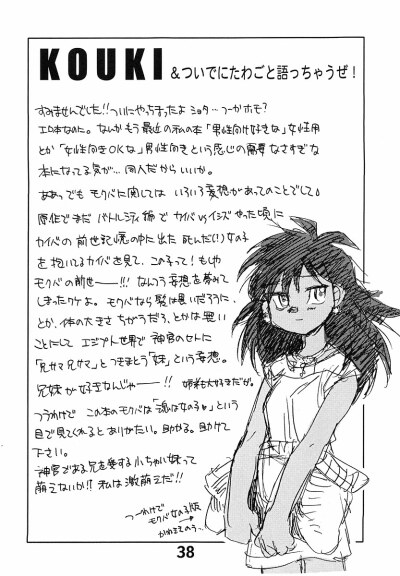 KOUKI &ついでにたわごと語っちゃうぜ!
すみませんでした!!ついにやっちったよ ショタ…つーかホモ?
エロ本なのに。なんかもう最近の私の本「男性向け好きな」女性用
とか「女性向きOKな」男性向きという感じの需要なさすぎな
本になってる気が…同人だからいいか。
ああっでもモクバに関しては いろいろ妄想があってのことでして。
原作でまだ バトルシティ編で カイバVSイシズ やった頃に
カイバの前世記憶の中に出た 死んだ(!)女の子
を抱いてるカイバを見て、この子って!もしや
モクバの前世──!!! なんつう妄想を夢みて
しまったワケよ。モクバなら髪は黒いだろうに、
とか、体の大きさちがうだろ、とかは置い
ことにして エジプト世界で 神官のせんに
「兄サマ兄サマ」とつきまとう「妹」という妄想。
兄妹が好きなんじゃ──!! 姉弟も大好きだが。
つうわけで この本のモクバは「魂は女の子♥」という
目で見てくれると ありがたい。助かる。助けて
下さい。
神官である兄を愛する小ちゃい妹って
萌えないか!?私は激萌えだ!!
つーわけで
モクバ女の子版
38